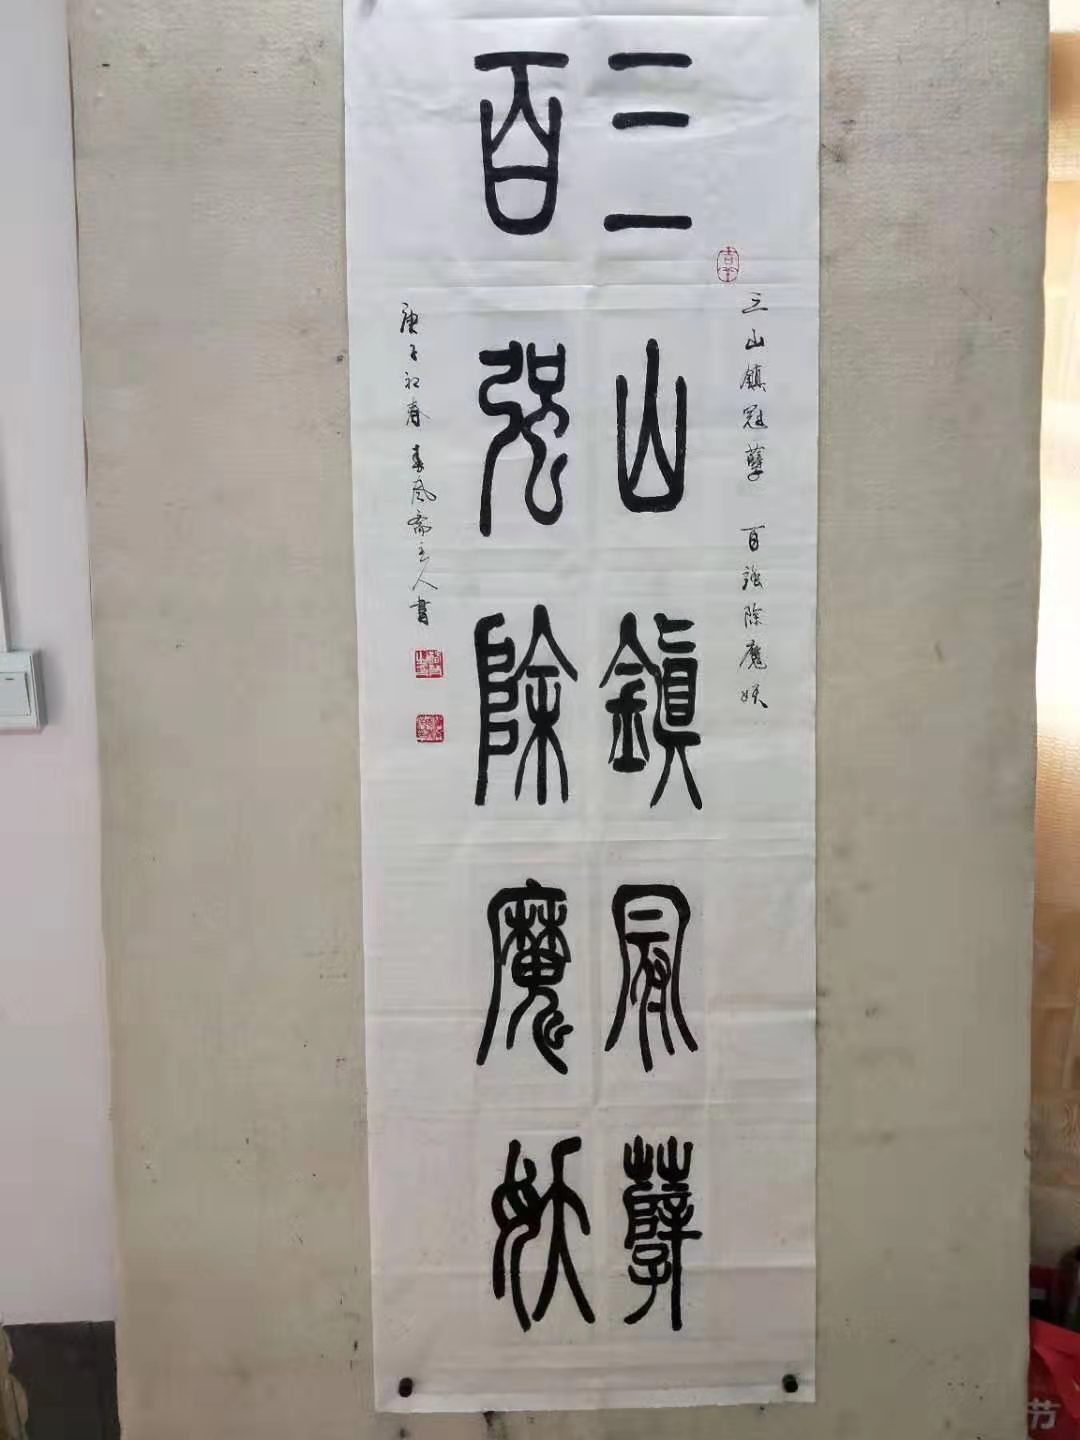 三山鎮冠孽
百强除魔妖
三山鎮冠孽 百強除魔妖
庚子初春 春風齋主人書
节